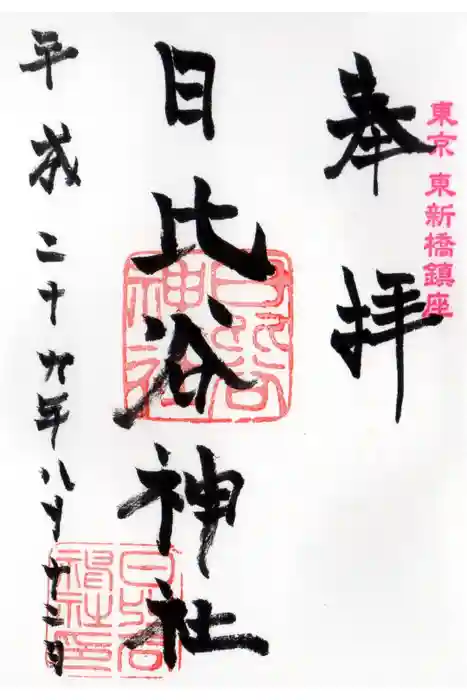 東京 東新橋鎮座
奉拝
日比谷神社
平成二十九年八月十三日
日比谷神社
日比谷神社印